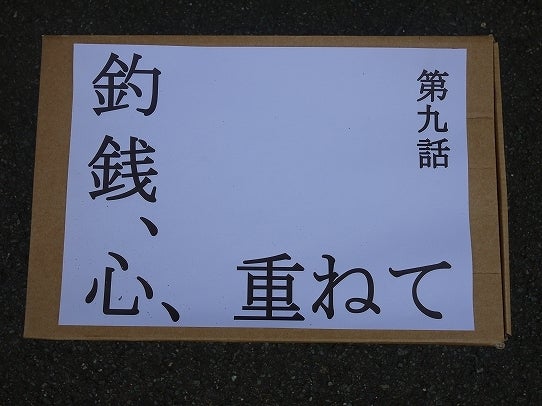 第九話
釣銭、
心、重ねて